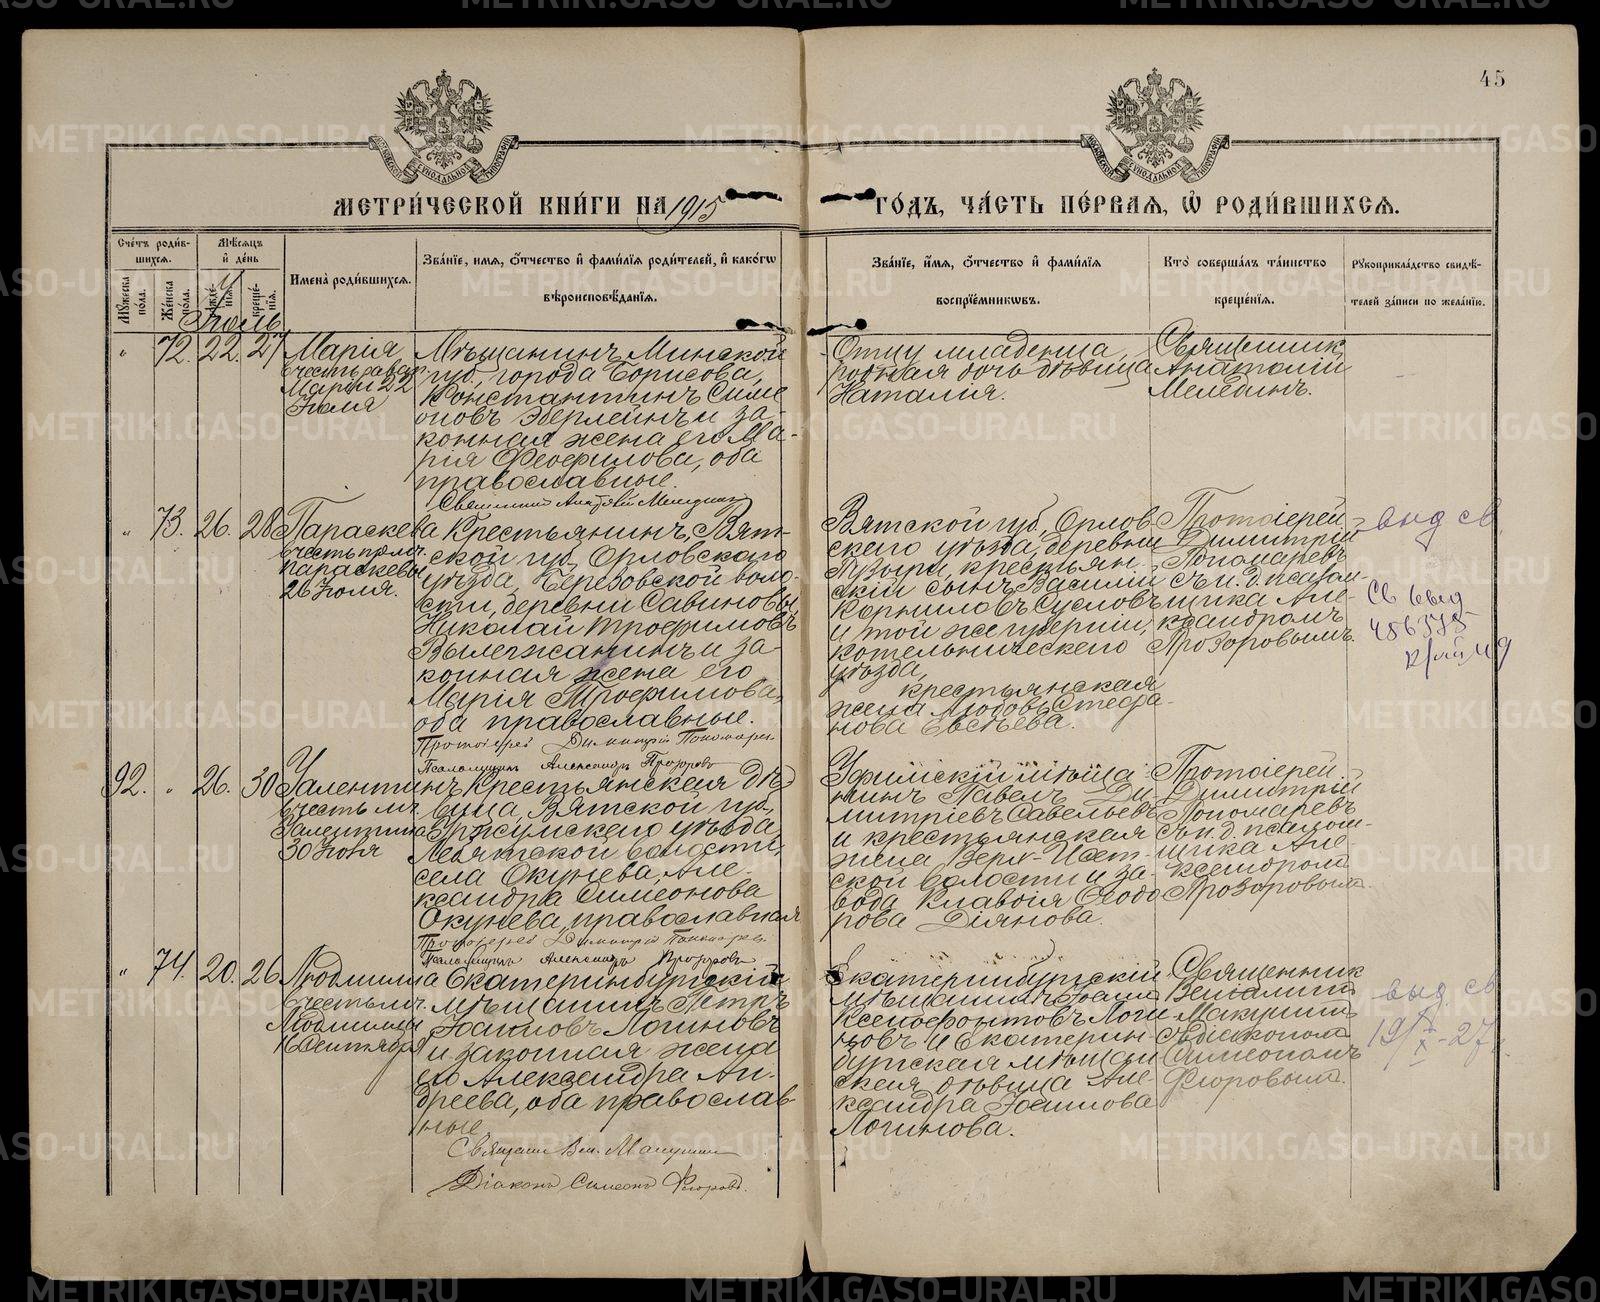 45
МЕТРИ́ЧЕСКОЙ КНИ́ГИ НА 1915 ГО́ДЪ, ЧА́СТЬ ПЕ́РВАЯ, Ѡ РОДИ́ВШИХСЯ.
Сче́тъ роди́вшихся.
Мѣ́сяцъ и҆ де́нь
Мꙋ́жеска по́ла.
Же́нска по́ла.
рожде́нїѧ.
креще́нїѧ.
И҆мена̀ роди́вшихсѧ.
Зва́нїе, и҆мѧ, ѻ҆́тчество и҆ фами́лїѧ роди́телей, и҆ како́гѡ
вѣроисповѣ́данїѧ.
Зва́нїе, и҆́мѧ, ѻ҆́тчество и҆ фами́лїѧ
воспрїе́мникѡвъ.
Кто̀ соверша́лъ та́инство
креще́нїѧ.
Рꙋкоприкла́дство свидѣ́-
телей за́писи по жела́нїю.
Іюль
" 72. 22. 27
Марія
въ честь равн.
Маріи 22
Іюля
Мѣщанинъ Минской
губ., города Борисова,
Константинъ Симе
оновъ Эберлейнъ и за-
конная жена его Ма-
рія Феофилова, оба
православные.
Священникъ Анатолій Мелединъ
Отцу младенца,
родная дочь дѣвица
Наталія.
Священникъ
Анатолій
Мелединъ.
" 73. 26. 28
Параскева
въ честь прмч.
Параскевы
26 Іюля.
Крестьянинъ, Вят-
ской губ., Орловскаго
уѣзда, Березовской воло-
сти, деревни Савиновы
Николай Трофимовъ
Вылегжанинъ и за-
конная жена его
Марія Трофимова,
оба православные.
Протоіерей Димитрій Пономаревъ
Псаломщикъ Александръ Прозоровъ
Вятской губ., Орлов-
скаго уѣзда, деревни
Пузыри, крестьян-
скій сынъ Василій
Корниловъ Сусловъ
и той же губерніи,
Котельническаго
уѣзда,
крестьянская
жена Любовь Стефа-
нова Евсѣева.
Протоіерей
Димитрій
Пономаревъ
съ и. д. псалом-
щика Але-
ксандромъ
Прозоровымъ.
выд св.
92. " 26. 30
Валентинъ
въ честь мч.
Валентина
30 Іюля
Крестьянская дѣ-
вица, Вятской губ.,
Уржумскаго уѣзда,
села Окунева, Але-
ксандра Симеонова
Окунева, православная
Протоіерей Димитрій Пономаревъ
Псаломщикъ Александръ Прозоровъ
Уфимскій мѣща-
нинъ Павелъ Ди-
митріевъ Савельевъ
и крестьянская
жена, Верх-Исет-
ской волости и за-
вода Клавдія Ѳеодо
рова Діянова.
Протоіерей
Димитрій
Пономаревъ
съ и. д. псалом-
щика Але-
ксандромъ
Прозоровымъ.
" 74. 20. 26
Людмила
въ честь мч.
Людмилы
16 Сентября
Екатеринбургскій
мѣщанинъ Петръ
Іоанновъ Логиновъ
и законная жена
его Александра Ан-
дреева, оба православ
ные
Діаконъ Симеонъ Флоровъ.
Екатеринбургскій
мѣщанинъ Іоаннъ
Ксенофонтовъ Логи
новъ и Екатерин-
бургская мѣщан
ская дѣвица Але-
ксандра Іоаннова
Логинова.
Священникъ
Веніаминъ
съ діакономъ
Симеономъ
Флоровымъ.
выд. св